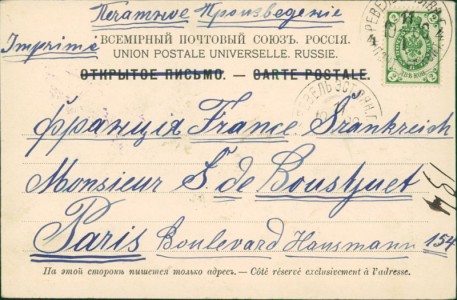 Печатное Произведенiе
Imprimé
ВСЕМIРНЫЙ ПОЧТОВЫЙ СОЮЗЪ. РОССIЯ.
UNION POSTALE UNIVERSELLE. RUSSIE.
ОТКРЫТОЕ ПИСЬМО. — CARTE POSTALE.
Францiя France Frankreich
Monsieur S. de Boustquet
Paris Boulevard Hausmann 154
На этой сторонѣ пишется только адресъ. — Côté réservé exclusivement à l'adresse.